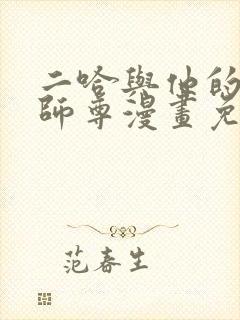 二哈與他的
師尊漫畫免
范春生